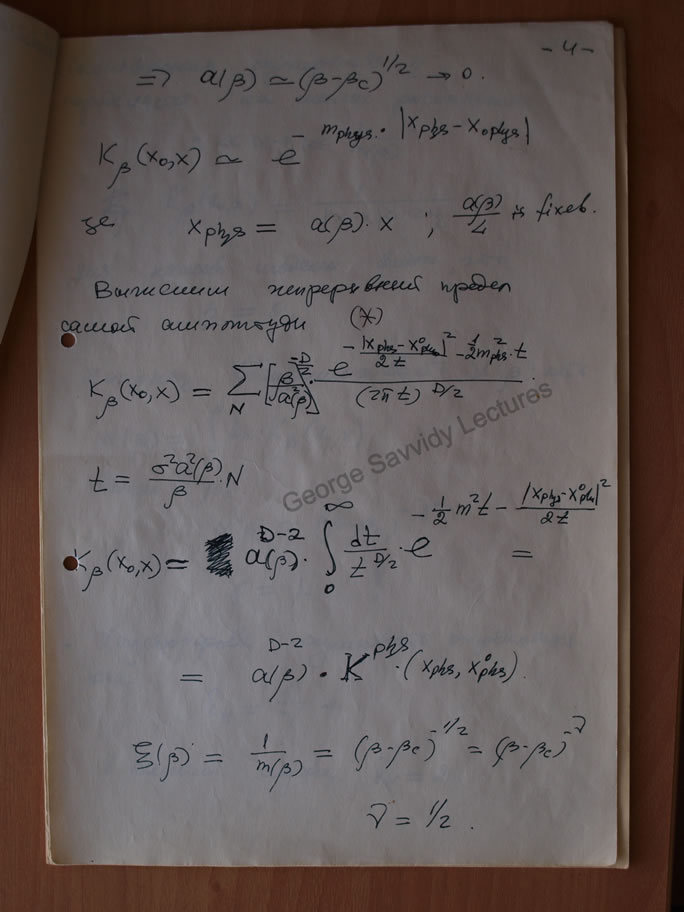 - 4 -
=> a(β) ≃ (β-βc)^{1/2} → 0.
K_β(x₀,x) ≃ e^{- m_{phys}·|x_{phys} - x_{0 phys}|}
где x_{phys} = a(β)·x ; a(β)/L is fixed.
Вычислим непрерывный предел
самой амплитуды (*)
K_β(x₀,x) = Σ_N [β/a²(β)]^{-D/2} · e^{-|x_{phys}-x⁰_{phys}|²/2t - ½m²_{phys}·t}/(2πt)^{D/2}
t = σ²a²(β)/β · N
K_β(x₀,x) = a(β)^{D-2} · ∫₀^∞ dt/t^{D/2} · e^{-½m²t - |x_{phys}-x⁰_{phys}|²/2t} =
= a(β)^{D-2} · K^{phys}·(x_{phys}, x⁰_{phys}).
ξ(β) = 1/m(β) = (β-βc)^{-1/2} = (β-βc)^{-ν}
ν = 1/2.
George Savvidy Lectures